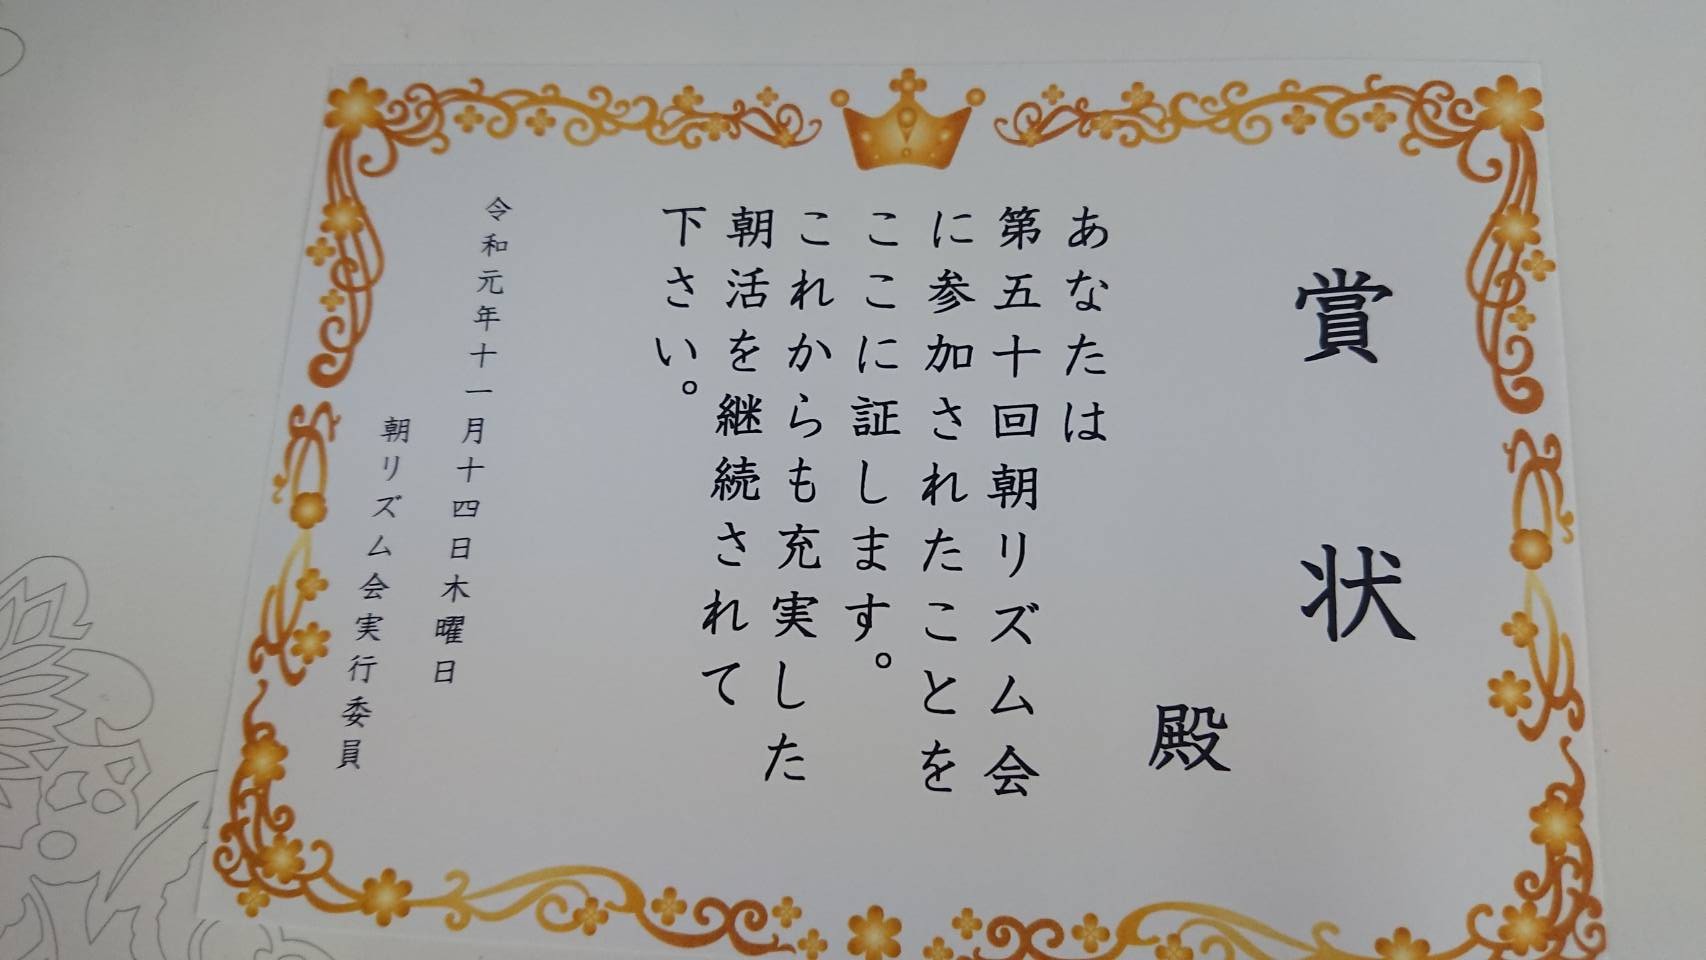 賞状
殿
あなたは
第五十回朝リズム会
に参加されたことを
ここに証します。
これからも充実した
朝活を継続されて
下さい。
令和元年十一月十四日木曜日
朝リズム会実行委員